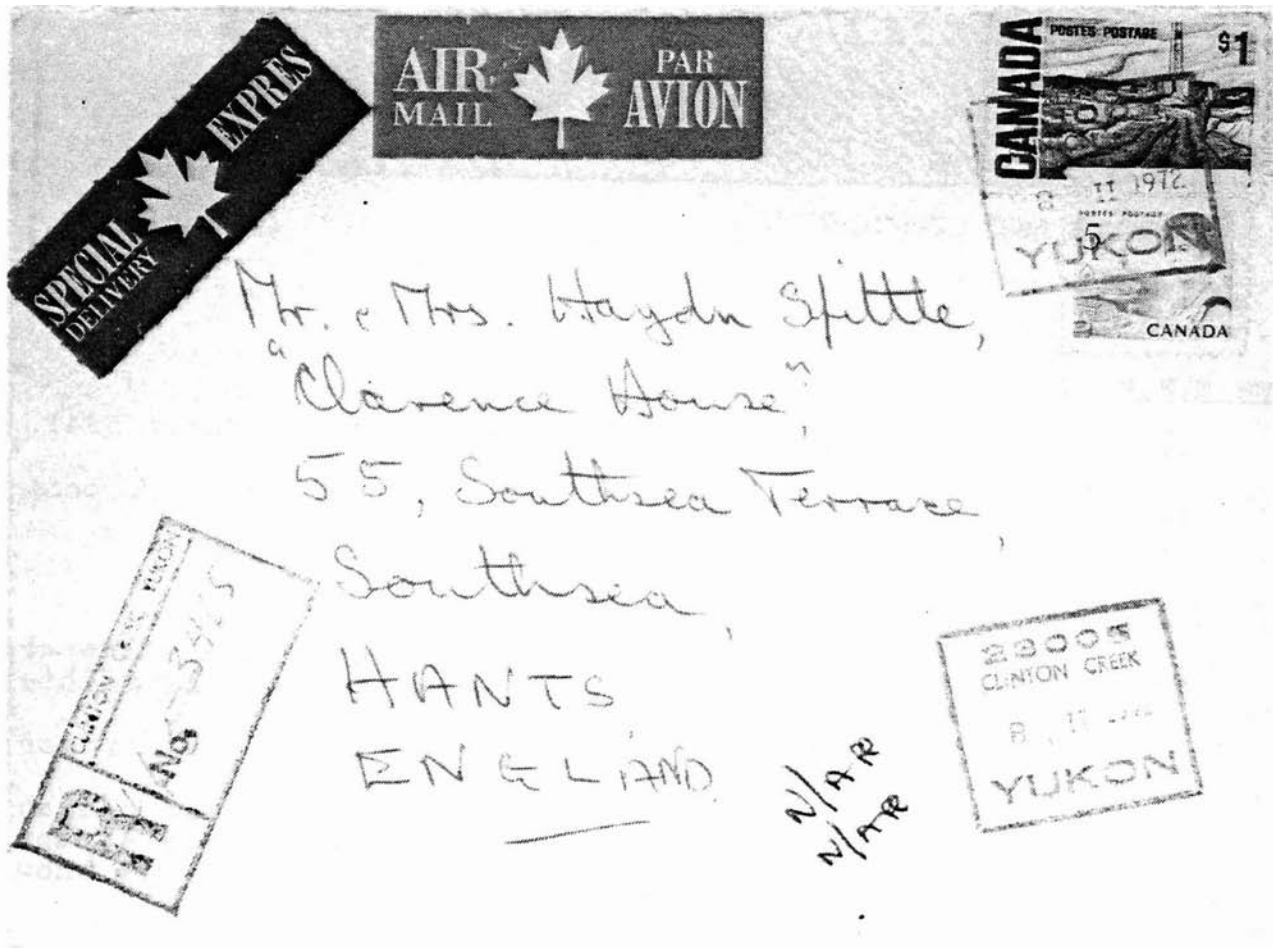 SPECIAL DELIVERY EXPRÈS
AIR MAIL
PAR AVION
CANADA
POSTES POSTAGE
$1
8 II 1972
POSTES POSTAGE
5
YUKON
CANADA
Mr. & Mrs. Haydn Spittle,
"Clarence House",
55, Southsea Terrace,
Southsea,
HANTS
ENGLAND
R
CLINTON YUKON
No.
23005
CLINTON CREEK
8 II
YUKON
N/AR
N/AR